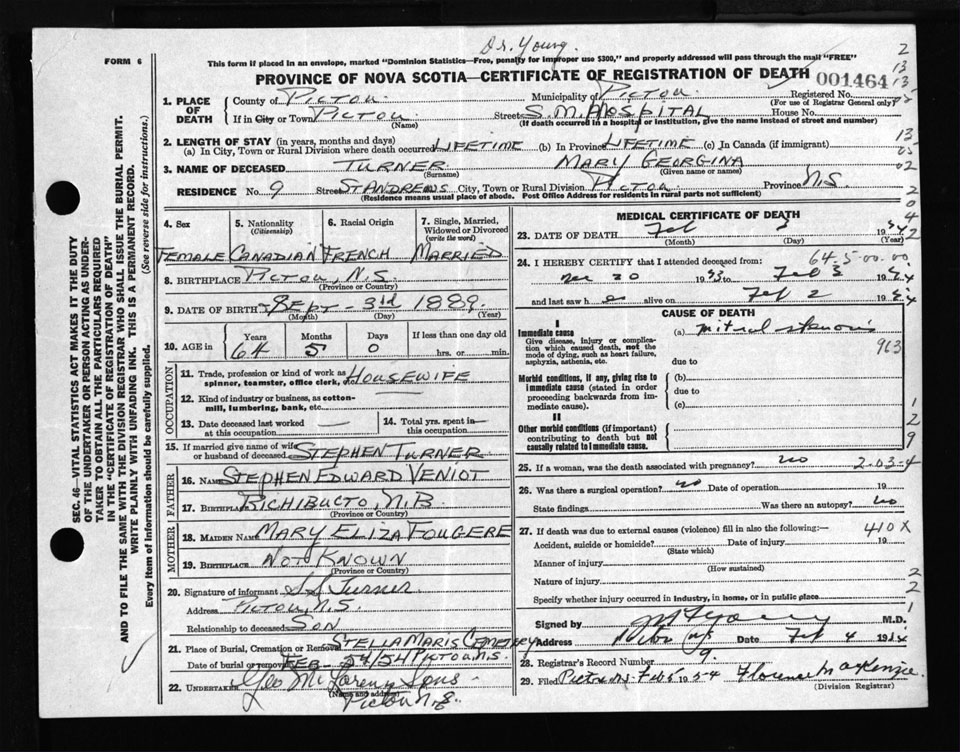 Dr. Young.
FORM 6
This form if placed in an envelope, marked "Dominion Statistics—Free, penalty for improper use $300," and properly addressed will pass through the mail "FREE"
PROVINCE OF NOVA SCOTIA—CERTIFICATE OF REGISTRATION OF DEATH 001464
1. PLACE OF DEATH
County of PICTOU Municipality of PICTOU Registered No.
(For use of Registrar General only)
If in City or Town PICTOU Street S.M. HOSPITAL House No.
(Name) (If death occurred in a hospital or institution, give the name instead of street and number)
2. LENGTH OF STAY (in years, months and days)
(a) In City, Town or Rural Division where death occurred LIFETIME (b) In Province LIFETIME (c) In Canada (if immigrant)
3. NAME OF DECEASED TURNER MARY GEORGINA
(Surname) (Given name or names)
RESIDENCE No. 9 Street ST ANDREWS City, Town or Rural Division PICTOU Province N.S.
(Residence means usual place of abode. Post Office Address for residents in rural parts not sufficient)
4. Sex
FEMALE
5. Nationality
(Citizenship)
CANADIAN
6. Racial Origin
FRENCH
7. Single, Married, Widowed or Divorced
(write the word)
MARRIED
8. BIRTHPLACE PICTOU, N.S.
(Province or Country)
9. DATE OF BIRTH Sep. 3rd 1889.
(Month) (Day) (Year)
10. AGE in Years Months Days If less than one day old
64 5 0 hrs. or min.
OCCUPATION
11. Trade, profession or kind of work as HOUSEWIFE
spinner, teamster, office clerk, etc.
12. Kind of industry or business, as cotton-
mill, lumbering, bank, etc. —
13. Date deceased last worked
at this occupation —
14. Total yrs. spent in
this occupation —
15. If married give name of wife
or husband of deceased STEPHEN TURNER
FATHER
16. Name STEPHEN EDWARD VENIOT
17. Birthplace RICHIBUCTO, N.B.
(Province or Country)
MOTHER
18. MAIDEN NAME MARY ELIZA FOUGERE
19. BIRTHPLACE NOT KNOWN
(Province or Country)
20. Signature of informant Turner
Address PICTOU, N.S.
Relationship to deceased SON
21. Place of Burial, Cremation or Removal STELLA MARIS CEMETERY
Date of burial or removal FEB PICTOU N.S.
22. UNDERTAKER Geo McLaren & Sons
(Name and address)
Pictou N.S.
MEDICAL CERTIFICATE OF DEATH
23. DATE OF DEATH Feb 3 1954
(Month) (Day) (Year)
64.5-00.00
24. I HEREBY CERTIFY that I attended deceased from:
20 1953 to Feb 3 1954
and last saw h alive on Feb 2 1954
CAUSE OF DEATH
I
Immediate cause
Give disease, injury or complication which caused death, not the mode of dying, such as heart failure, asphyxia, asthenia, etc.
(a) mitral stenosis
due to
Morbid conditions, if any, giving rise to immediate cause (stated in order proceeding backwards from immediate cause).
(b)
due to
(c)
II
Other morbid conditions (if important) contributing to death but not causally related to immediate cause.
25. If a woman, was the death associated with pregnancy? no 2-03-4
26. Was there a surgical operation? no Date of operation 19
State findings Was there an autopsy? no
27. If death was due to external causes (violence) fill in also the following:— 410X
Accident, suicide or homicide? Date of injury 19
(State which)
Manner of injury
(How sustained)
Nature of injury
Specify whether injury occurred in industry, in home, or in public place
Signed by M.D.
Address Pictou NS Date Feb 4 1954
28. Registrar's Record Number 9.
29. Filed Pictou NS Feb 6 1954 Florence MacKenzie
(Division Registrar)
SEC. 46—VITAL STATISTICS ACT MAKES IT THE DUTY
OF THE UNDERTAKER OR PERSON ACTING AS UNDER-
TAKER TO OBTAIN ALL THE PARTICULARS REQUIRED
IN THE "CERTIFICATE OF REGISTRATION OF DEATH"
AND TO FILE THE SAME WITH THE DIVISION REGISTRAR WHO SHALL ISSUE THE BURIAL PERMIT.
WRITE PLAINLY WITH UNFADING INK. THIS IS A PERMANENT RECORD.
Every item of information should be carefully supplied. (See reverse side for instructions.)